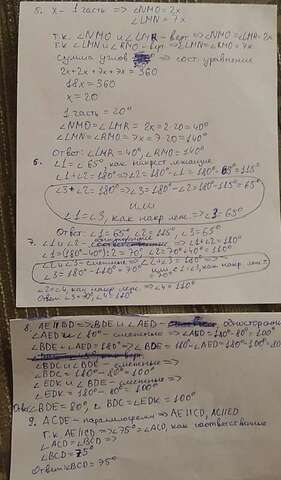 5. x - 1 часть => ∠NMO = 2x
∠LMN = 7x
т.к. ∠NMO и ∠LMR - верт => ∠NMO = ∠LMR = 2x
т.к. ∠LMN и ∠RMO - верт => ∠LMN = ∠RMO = 7x
сумма углов => сост. уравнение
2x + 2x + 7x + 7x = 360
18x = 360
x = 20
1 часть = 20°
∠NMO = ∠LMR = 2x = 2·20 = 40°
∠LMN = ∠RMO = 7x = 7·20 = 140°
Ответ: ∠LMR = 40°, ∠RMO = 140°
6. ∠1 = ∠65°, как накрест лежащие
∠1 + ∠2 = 180° => ∠2 = 180° - ∠1 = 180° - 65° = 115°
∠3 + ∠2 = 180° => ∠3 = 180° - ∠2 = 180° - 115° = 65°
или
∠1 = ∠3, как накр леж. => ∠3 = 65°
Ответ: ∠1 = 65°, ∠2 = 115°, ∠3 = 65°
7. ∠1 и ∠2 - => ∠1 + ∠2 = 180°
∠1 = (180° - 40°):2 = 70°, ∠2 = 70° + 40° = 110°
∠2 и ∠3 - смежные => ∠2 + ∠3 = 180° =>
∠3 = 180° - 110° = 70° или ∠3 = ∠1, как накр леж =
∠2 = ∠4, как накр леж. => ∠4 = 110°
Ответ: ∠3 = 70°, ∠4 = 110°
8. AE || BD => ∠BDE и ∠AED - одностор
∠AED и 80° - смежные => ∠AED = 180° - 80° = 100°
∠BDE + ∠AED = 180° => ∠BDE = 180° - ∠AED = 180° - 100° = 80
∠BDC и ∠BDE - смежные =>
∠BDC = 180° - 80° = 100°
∠EDK и ∠BDE - смежные =>
∠EDK = 180° - 80° = 100°
Ответ: ∠BDE = 80°, ∠BDC = ∠EDK = 100°
9. ACDE - параллелограмм => AE || CD, AC || ED
т.к. AE || CD => ∠75° = ∠ACD, как соответственные
∠ACD = ∠BCD =>
∠BCD = 75°
Ответ: ∠BCD = 75°